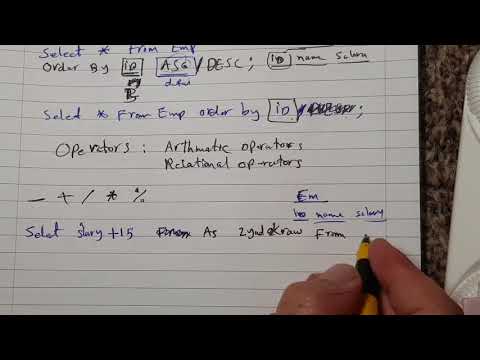 Select * From Emp
Order By ID ASC / DESC; ID name salary
Select * From Emp order by ID ;
Operators : Arthmatic oprators
Relational oprators
- + / * %
Em
ID name salary
Select slary + 15 As From